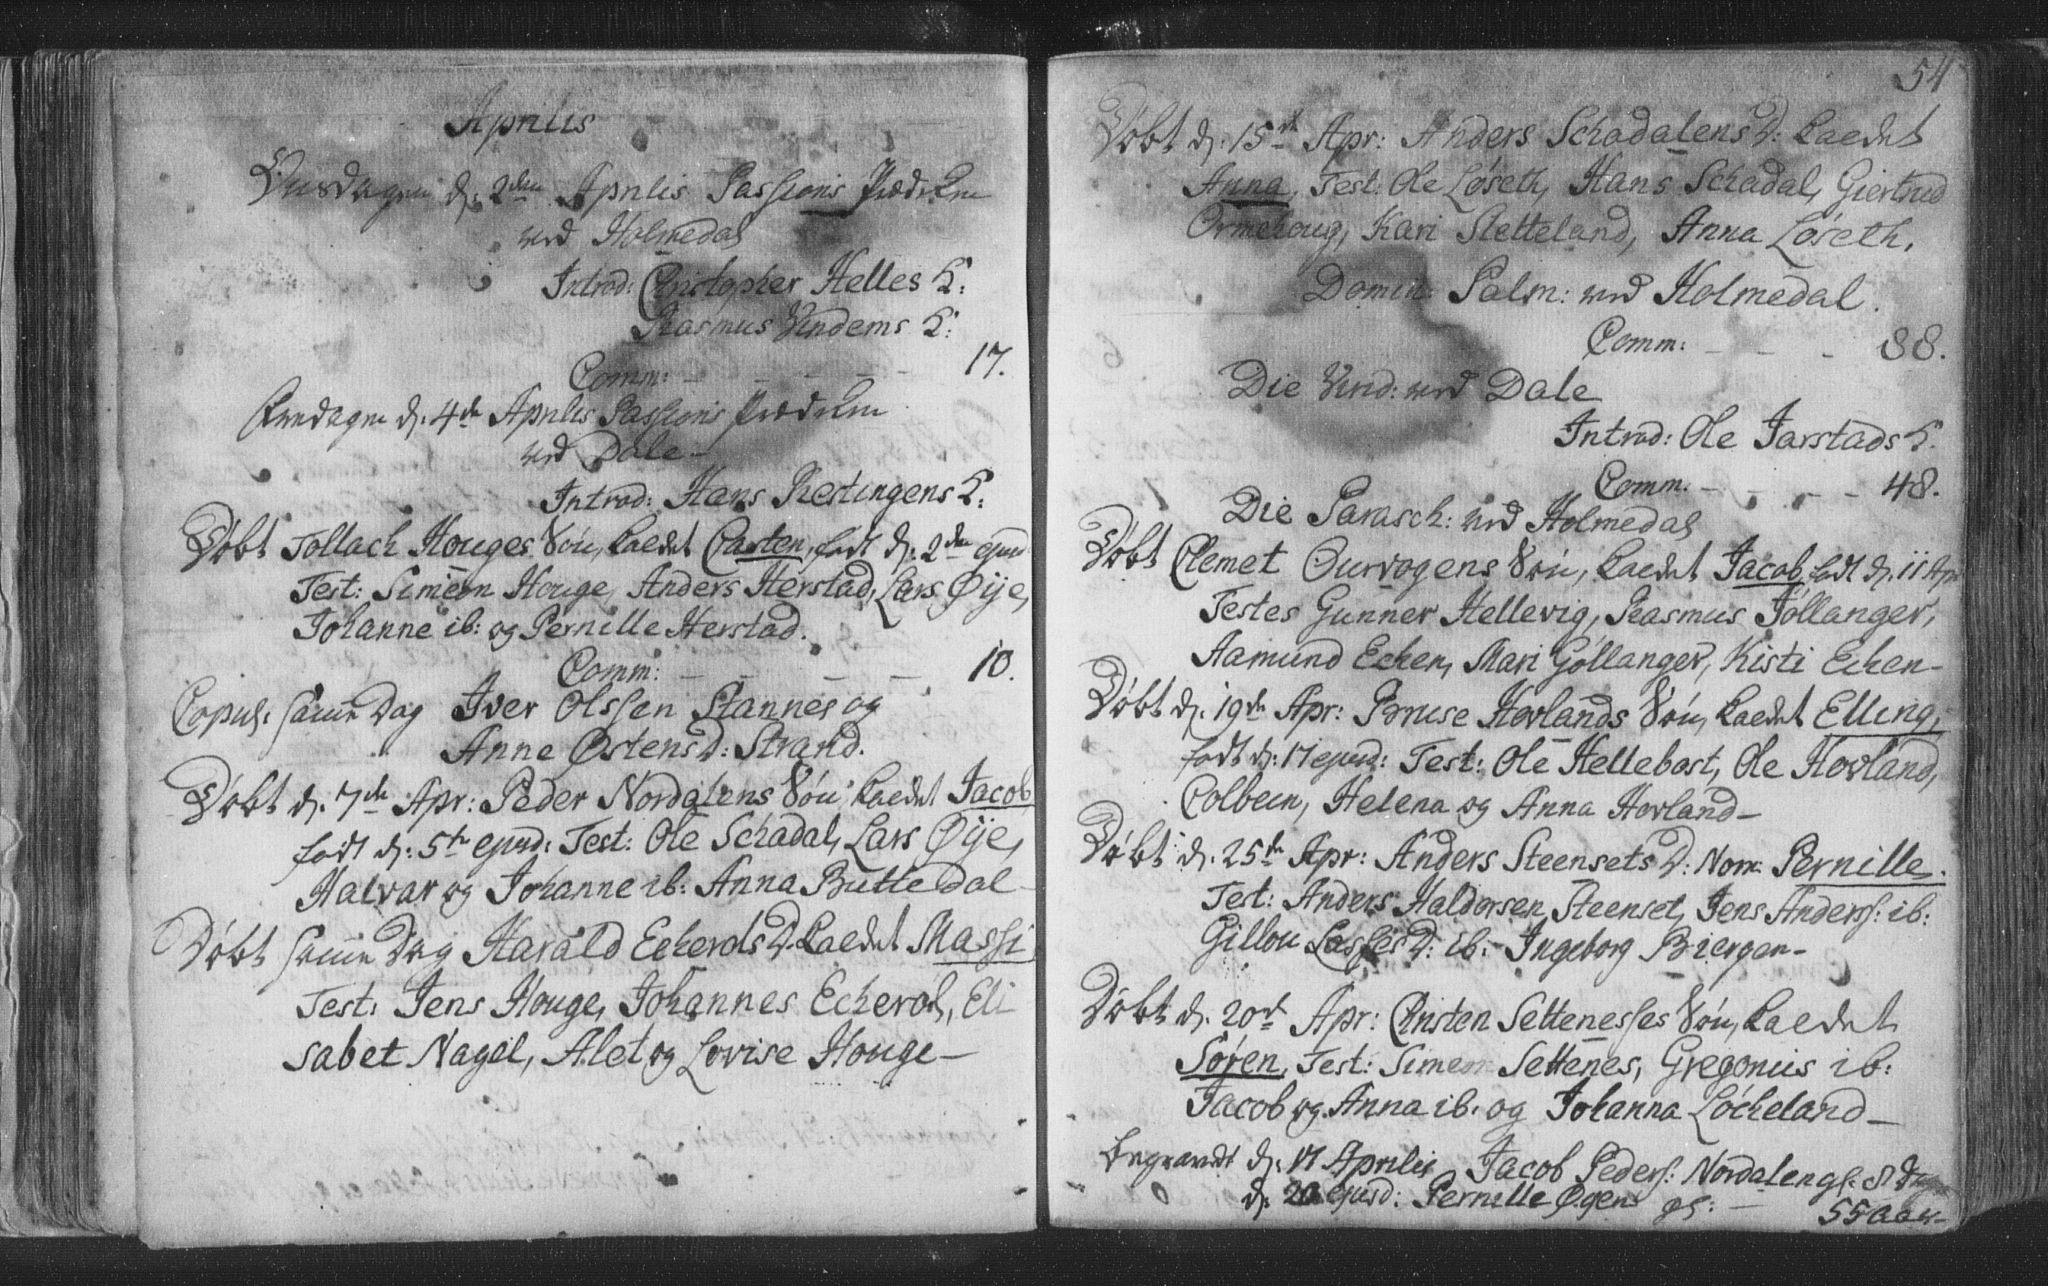 Aprilis
Onsdagen d: 2den Aprilis Passions Prædiken
ved Holmedal
Introd: Christopher Helles K:
Rasmus Undems K:
Comm: - - - - - 17.
Fredagen d: 4de Aprilis Passions Prædiken
ved Dale
Introd: Hans Restingens K:
Døbt Tollach Houges Søn, kaldet Casten, født d: 2den ejusd
Test: Simeon Houge, Anders Herstad, Lars Øije,
Johanne ib: og Pernille Herstad.
Comm: - - - - 10.
Copul: samme Dag Iver Olssen Stannes og
Anne Østensd: Strand.
Døbt d: 7de Apr: Peder Nordalens Søn, kaldet Jacob
født d: 5te ejusd: Test: Ole Schadal, Lars Øije,
Halvar og Johanne ib: Anna Buttedal
Døbt samme Dag Harald Echerols D. kaldet Massi
Test: Jens Houge, Johannes Echerol, Eli
sabet Nagel, Alet og Lovise Houge -
54
Døbt d: 15de Apr: Anders Schadalens D: kaldet
Anna, Test: Ole Løseth, Hans Schadal, Giertrud
Ormehoug, Kari Sletteland, Anna Løseth.
Domin: Palm: ved Holmedal.
Comm: - - - 88.
Die Virid: ved Dale
Introd: Ole Jarstads K.
Comm. - - - - 48.
Die Parasch: ved Holmedal
Døbt Clemet Ourvogens Søn, kaldet Jacob, født d: 11 Apr
Testes Gunner Hellevig, Rasmus Jøllanger,
Aamund Echen, Mari Gøllanger, Kisti Echen -
Døbt d: 19de Apr: Bruse Hovlands Søn, kaldet Elling,
født d: 17 ejusd: Test: Ole Hellebost, Ole Hovland,
Colbein, Helena og Anna Hovland -
Døbt d: 25de Apr: Anders Steensets D: Nom: Pernille.
Test: Anders Haldorsen Steenset, Jens Anderss: ib:
Gillou Lasses D: ib: Ingeborg Biergen -
Døbt d: 20de Apr: Christen Settenesses Søn, kaldet
Søren, Test: Simeon Settenes, Gregorius ib:
Jacob og Anna ib: og Johanna Løcheland -
Begravet d: 17 Aprilis Jacob Peders: Nordalen gl:
d: 20 ejusd: Pernille Øgens gl: - 55 aar -